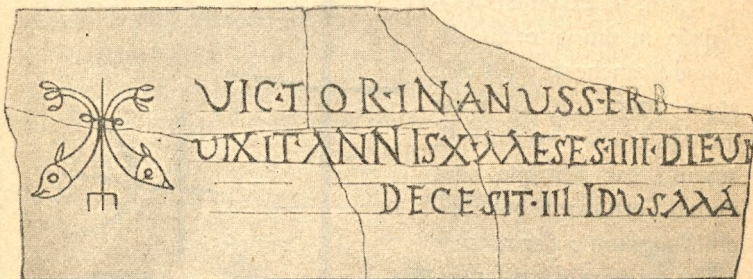 UIC·TOR·INANUSS·ERB...
UIXIT·ANNISX·MESES·IIII·DIEUI
DECESIT·III IDUSMA